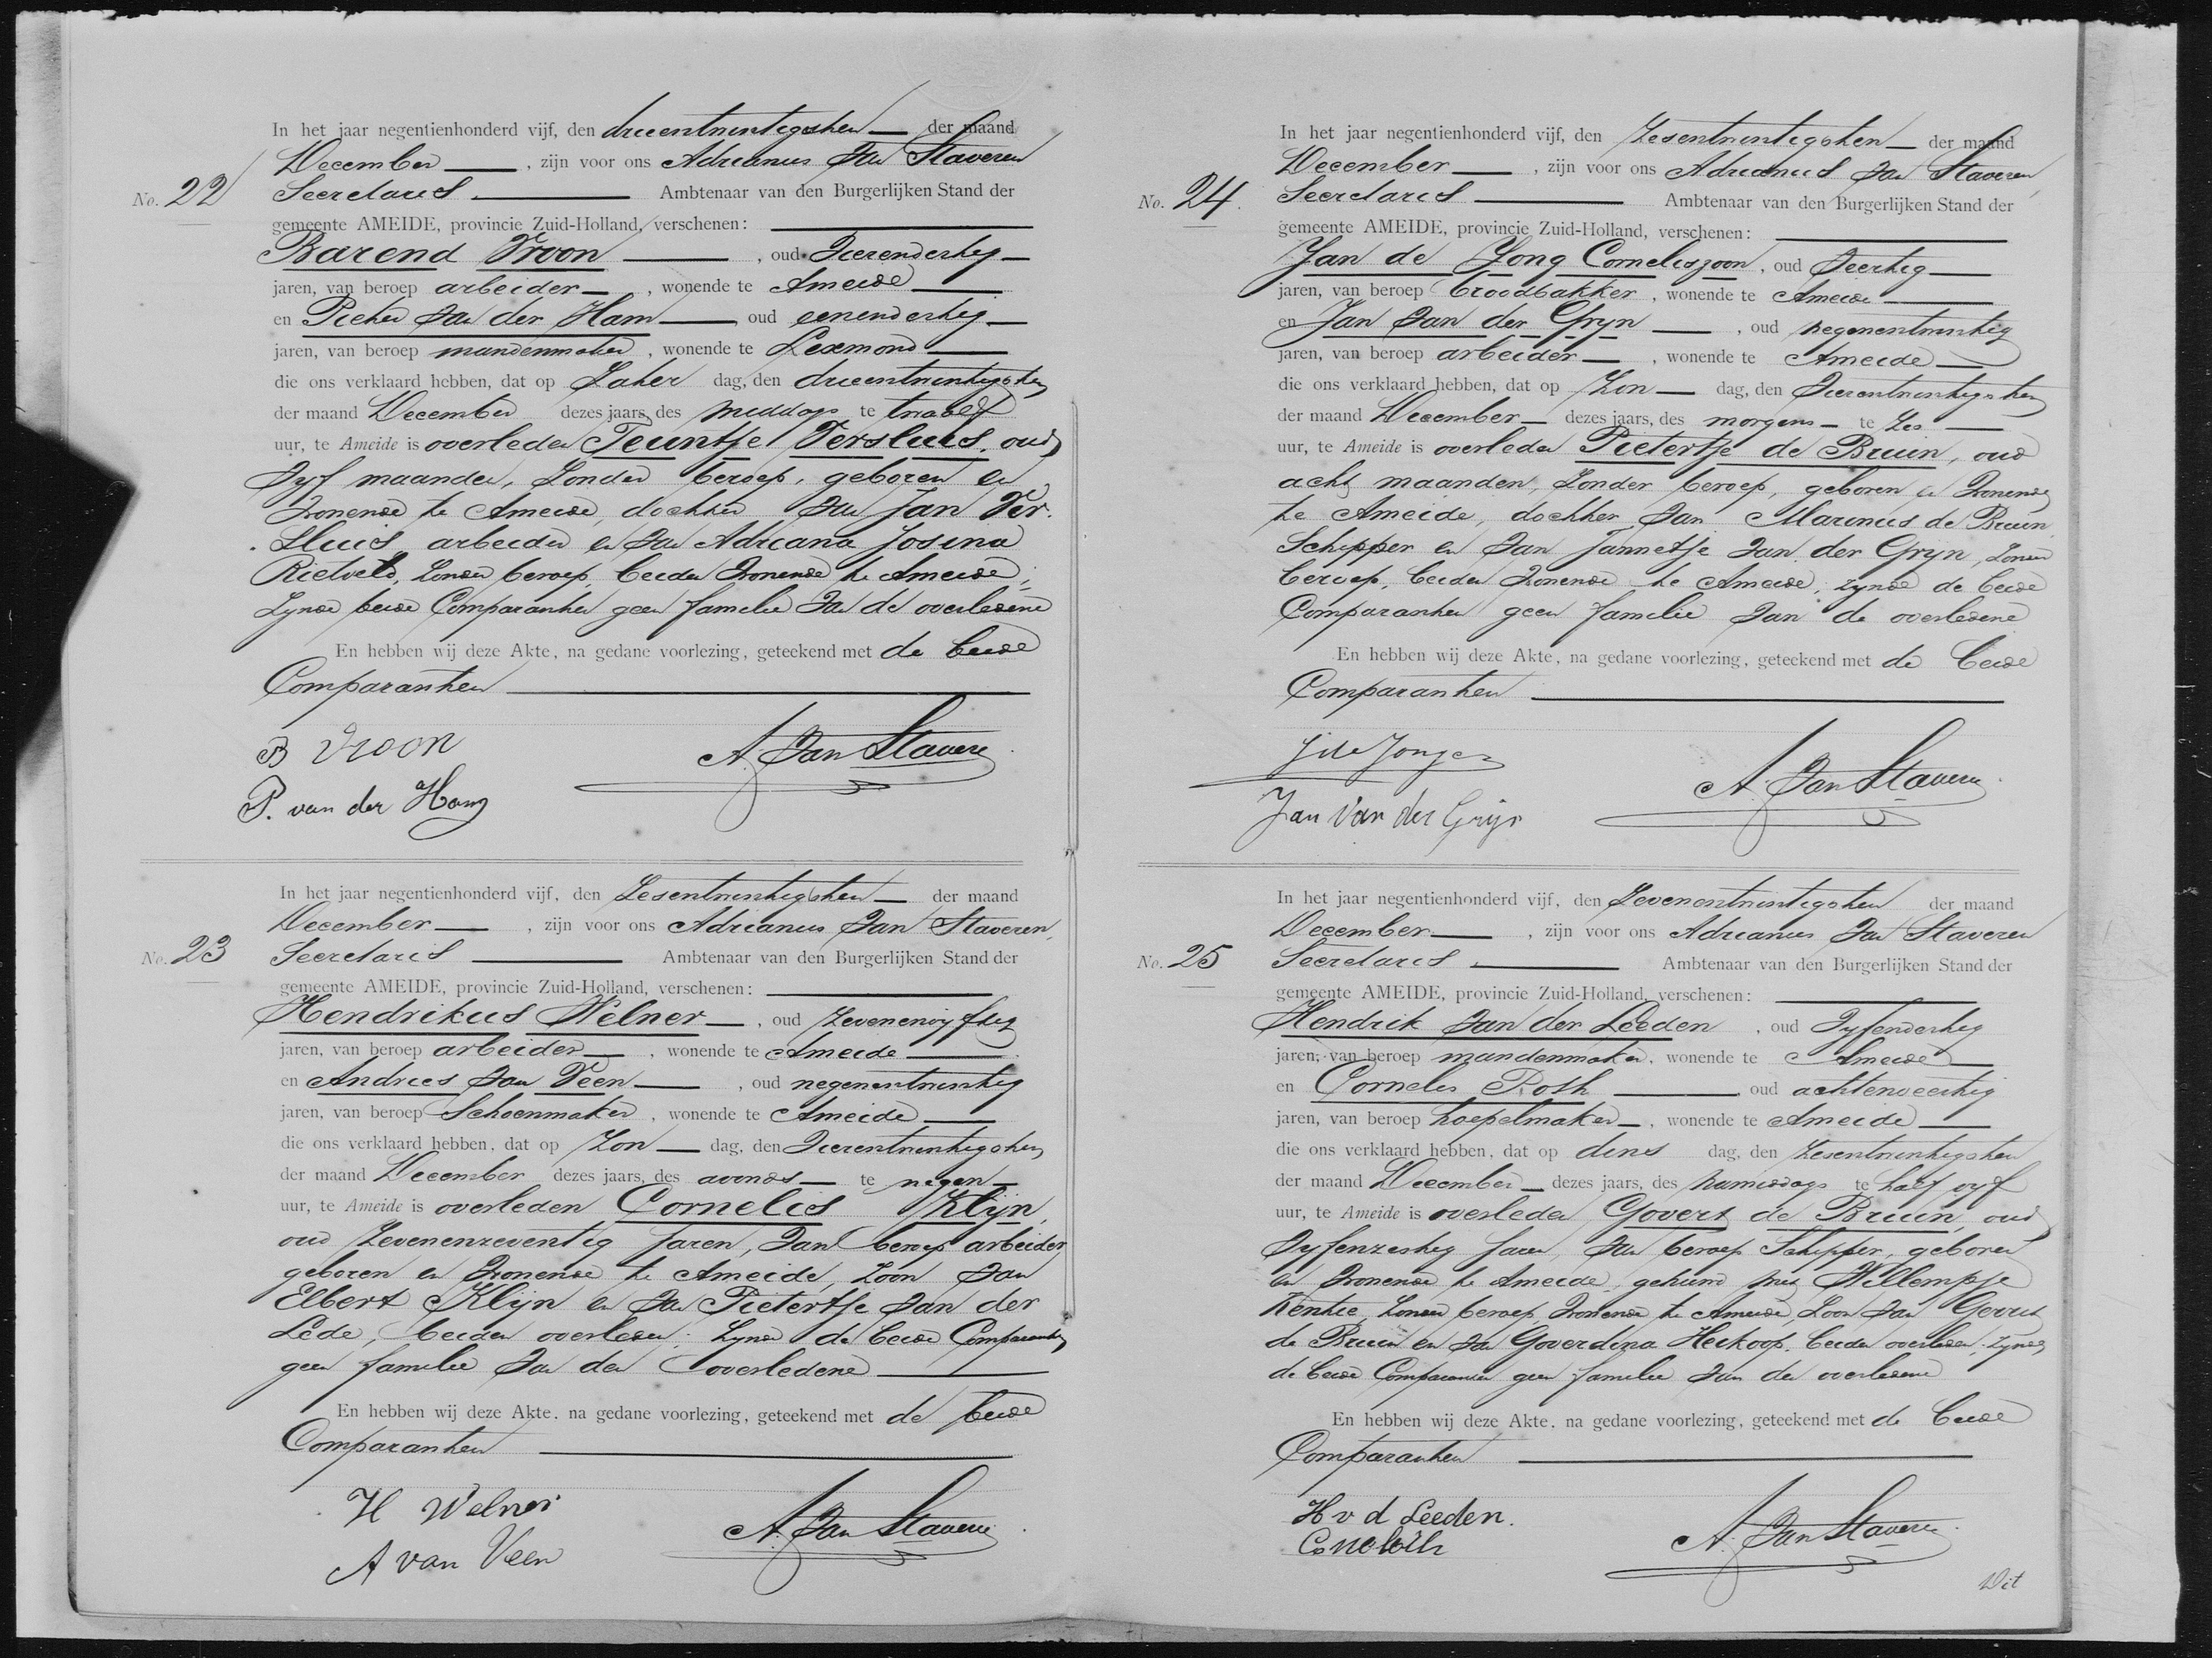 In het jaar negentienhonderd vijf, den drieentwintigsten der maand
December, zijn voor ons Adrianus van Staveren
No. 22 Secretaris Ambtenaar van den Burgerlijken Stand der
gemeente AMEIDE, provincie Zuid-Holland, verschenen:
Barend Vroon, oud vierendertig
jaren, van beroep arbeider, wonende te Ameide
en Pieter van der Ham oud eenendertig
jaren, van beroep mandenmaker, wonende te Lexmond
die ons verklaard hebben, dat op Zater dag, den drieentwintigsten
der maand December dezes jaars, des middags te twaalf
uur, te Ameide is overleden Teuntje Versluis, oud
vyf maanden, zonder beroep, geboren en
wonende te Ameide, dochter van Jan Ver-
sluis arbeider en van Adriana Josina
Rietveld, zonder beroep, beiden wonende te Ameide;
zynde beide Comparanten geen familie van de overledene
En hebben wij deze Akte, na gedane voorlezing, geteekend met de beide
Comparanten
B Vroon
A. van Staveren
P. van der Ham
In het jaar negentienhonderd vijf, den Zesentwintigsten der maand
December, zijn voor ons Adrianus van Staveren,
No. 23 Secretaris Ambtenaar van den Burgerlijken Stand der
gemeente AMEIDE, provincie Zuid-Holland, verschenen:
Hendrikus Welner, oud zevenenvijftig
jaren, van beroep arbeider, wonende te Ameide
en Andries van Veen, oud negenentwintig
jaren, van beroep Schoenmaker, wonende te Ameide
die ons verklaard hebben, dat op Zon dag, den vierentwintigsten
der maand December dezes jaars, des avonds te negen
uur, te Ameide is overleden Cornelis Klijn,
oud zevenenzeventig jaren, van beroep arbeider
geboren en wonende te Ameide, zoon van
Elbert Klijn en van Pietertje van der
Lede, beiden overleden; zynde de beide Comparanten
geen familie van den overledene
En hebben wij deze Akte, na gedane voorlezing, geteekend met de beide
Comparanten
H Welner
A. van Staveren
A van Veen
In het jaar negentienhonderd vijf, den Zesentwintigsten der maand
December, zijn voor ons Adrianus van Staveren,
No. 24. Secretaris Ambtenaar van den Burgerlijken Stand der
gemeente AMEIDE, provincie Zuid-Holland, verschenen:
Jan de Jong Corneliszoon, oud veertig
jaren, van beroep broodbakker, wonende te Ameide
en Jan van der Gryn, oud negenentwintig
jaren, van beroep arbeider, wonende te Ameide
die ons verklaard hebben, dat op Zon dag, den vierentwintigsten
der maand December dezes jaars, des morgens te zes
uur, te Ameide is overleden Pietertje de Bruin, oud
acht maanden, zonder beroep, geboren en wonende
te Ameide, dochter van Marinus de Bruin
Schipper en van Jannetje van der Gryn, zonder
beroep, beiden wonende te Ameide; zynde de beide
Comparanten geen familie van de overledene
En hebben wij deze Akte, na gedane voorlezing, geteekend met de beide
Comparanten
J de Jong Cz
A. van Staveren
Jan van der Grijn
In het jaar negentienhonderd vijf, den Zevenentwintigsten der maand
December, zijn voor ons Adrianus van Staveren
No. 25 Secretaris Ambtenaar van den Burgerlijken Stand der
gemeente AMEIDE, provincie Zuid-Holland, verschenen:
Hendrik van der Leeden, oud vyfendertig
jaren, van beroep mandenmaker, wonende te Ameide
en Cornelis Roth oud achtenveertig
jaren, van beroep hoepelmaker, wonende te Ameide
die ons verklaard hebben, dat op dins dag, den zesentwintigsten
der maand December dezes jaars, des namiddags te half vyf
uur, te Ameide is overleden Govert de Bruin, oud
vyfenzestig jaren, van beroep Schipper, geboren
en wonende te Ameide, gehuwd met Willempje
Kentie, zonder beroep, wonende te Ameide, zoon van Govert
de Bruin en van Goverdina Heikoop, beiden overleden; zynde
de beide Comparanten geen familie van den overledene
En hebben wij deze Akte, na gedane voorlezing, geteekend met de beide
Comparanten
H v d Leeden.
A. van Staveren
Dit